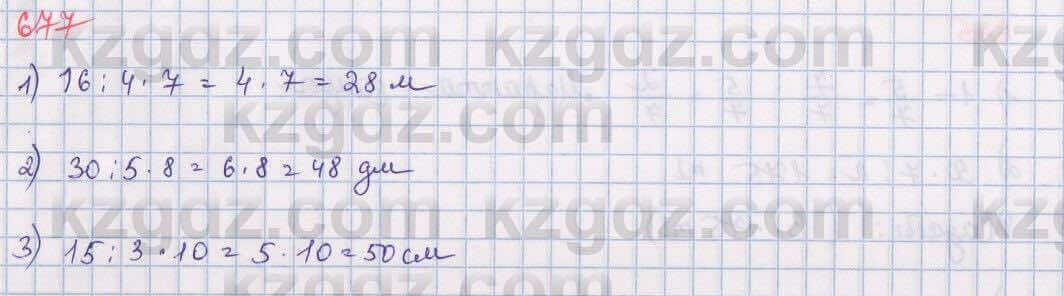 677
kzgdz.com kzgdz.com kzgdz
1) 16 : 4 · 7 = 4 · 7 = 28 м
kzgdz.com
2) 30 : 5 · 8 = 6 · 8 = 48 дм
kzgdz.com kzgdz.com kz
3) 15 : 3 · 10 = 5 · 10 = 50 см
kzgdz.com